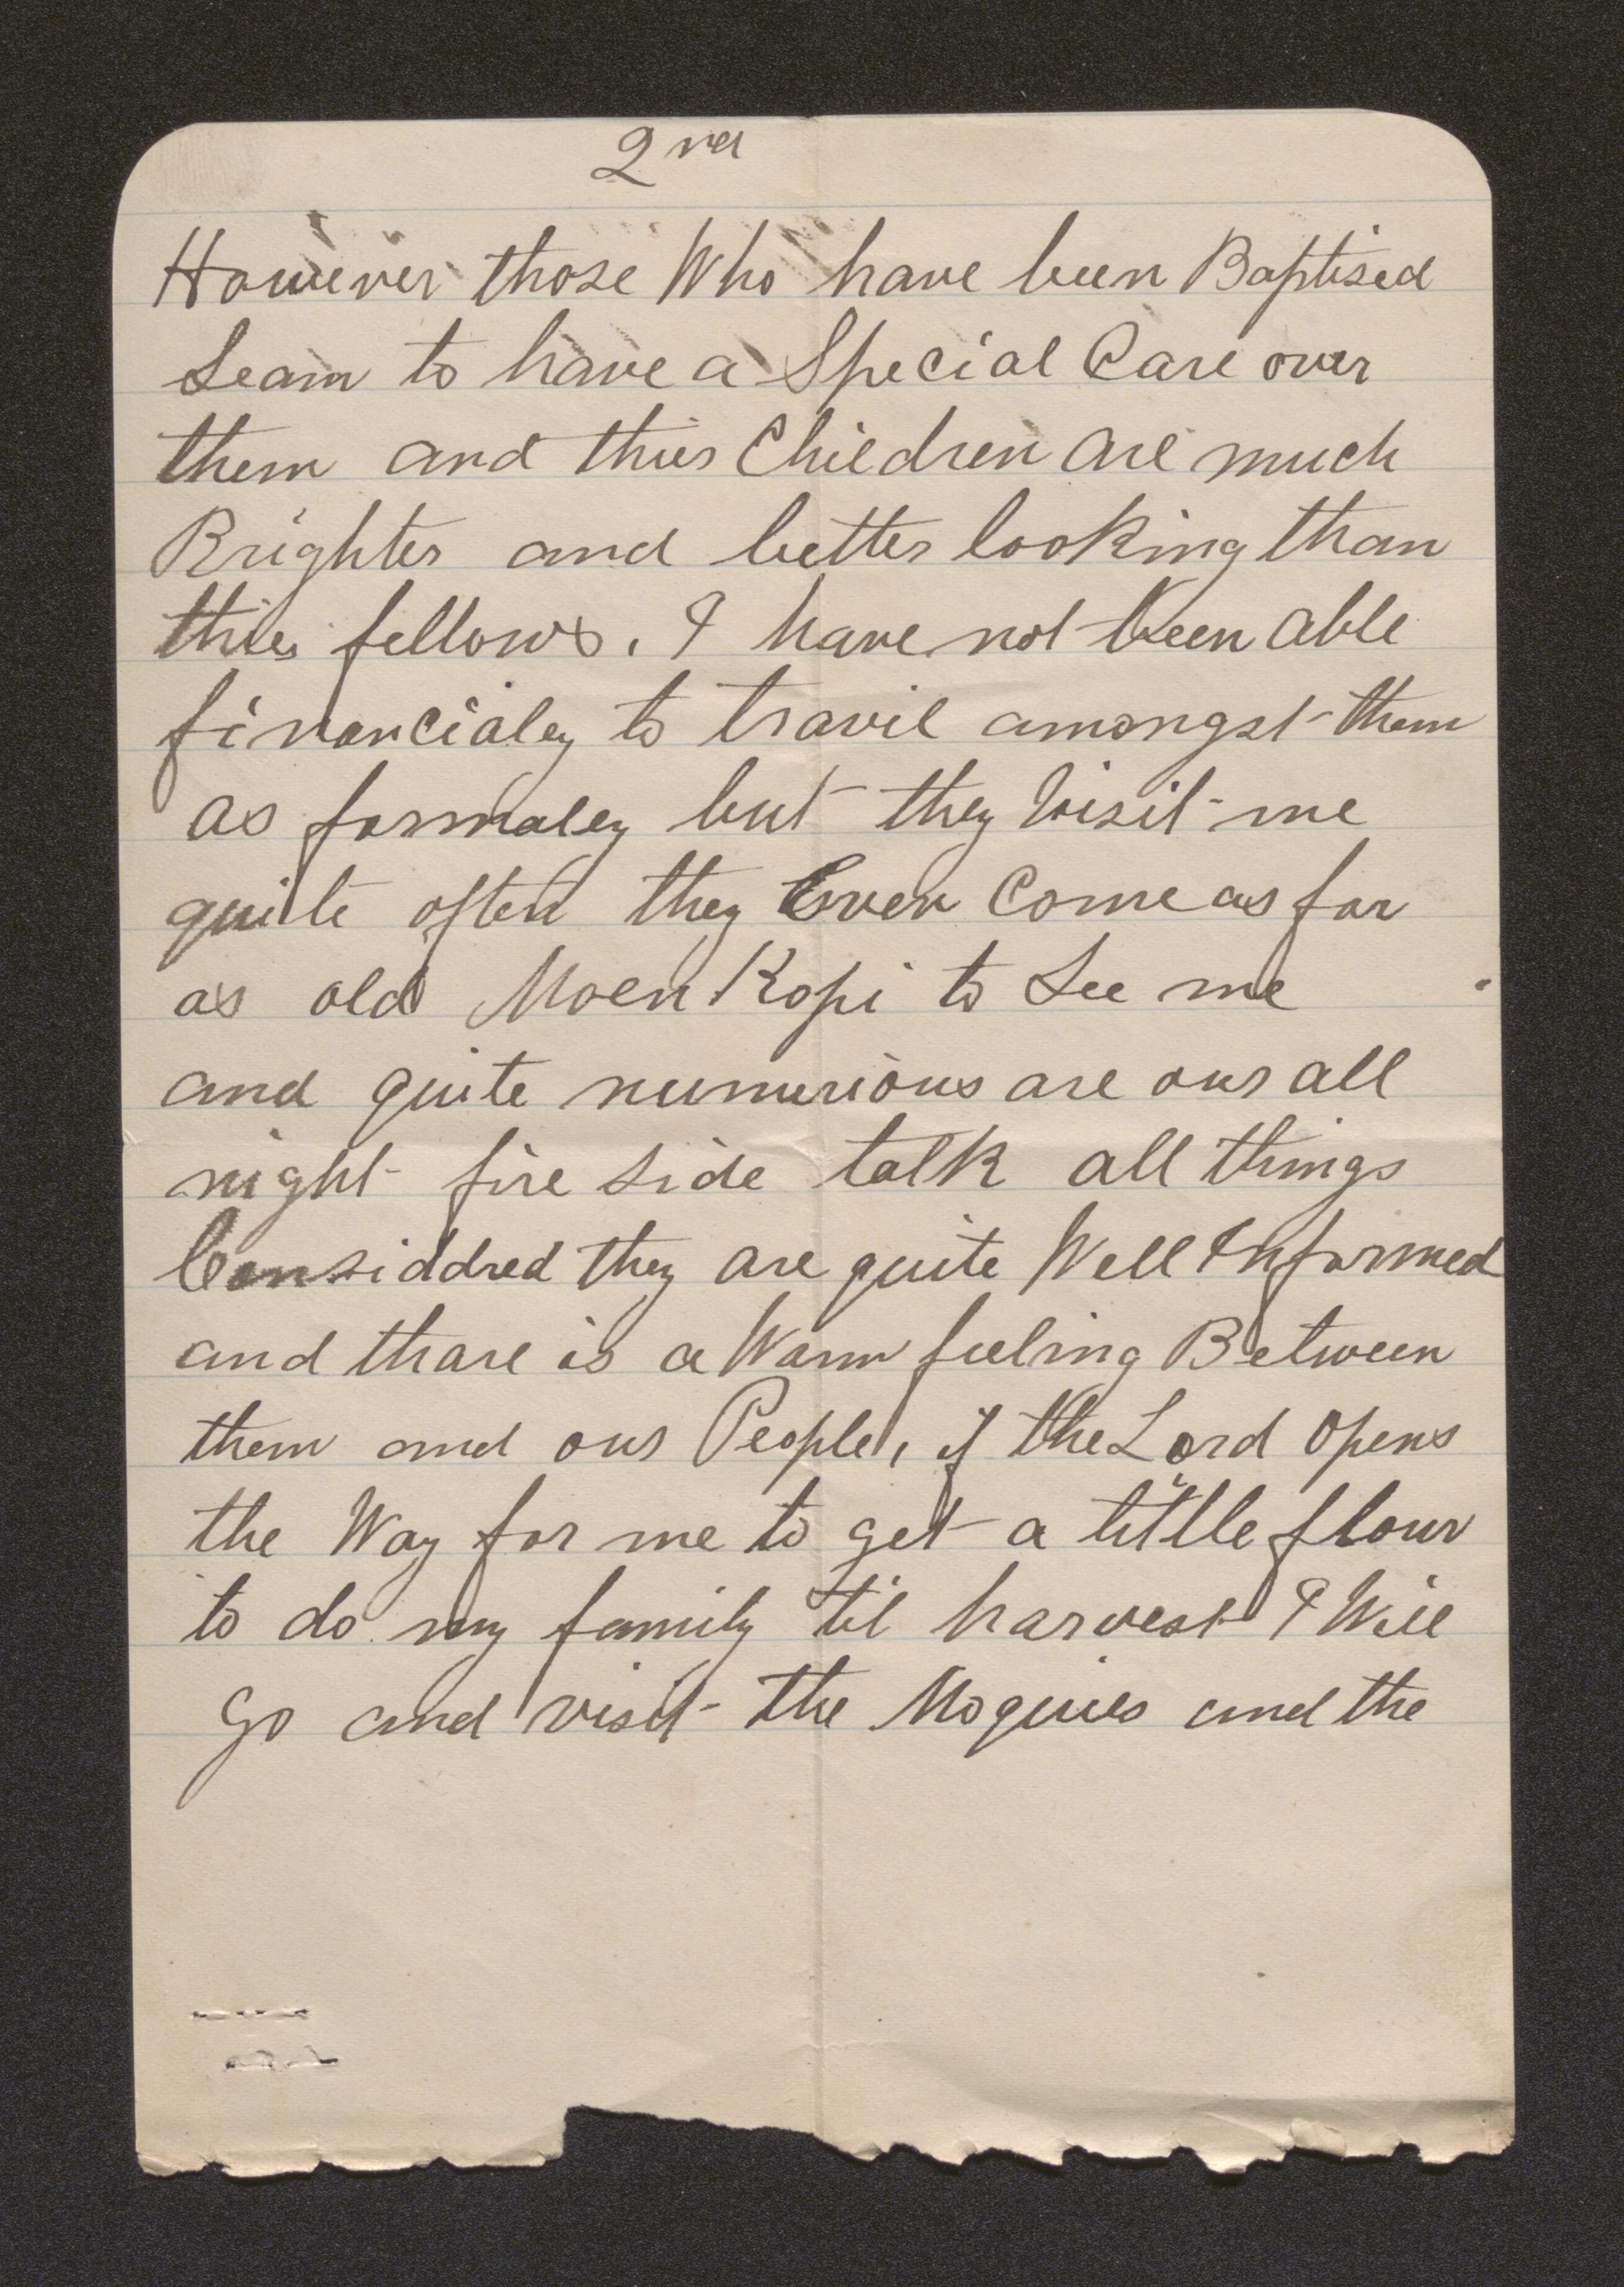 2nd
However those Who have been Baptised
Seam to have a Special Care over
them and thier Children are much
Brighter and better looking than
thier fellows. I have not been able
financialey to travil amongst them
as formaley but they visit me
quite often they Even Come as far
as old MoenKopi to See me
and quite numerious are our all
night fire side talk all things
Considdred they are quite Well Informed
and thare is a Warm feeling Between
them and our People, if the Lord opens
the Way for me to get a little flour
to do my family til harvest I Will
go and visit the Moquies and the